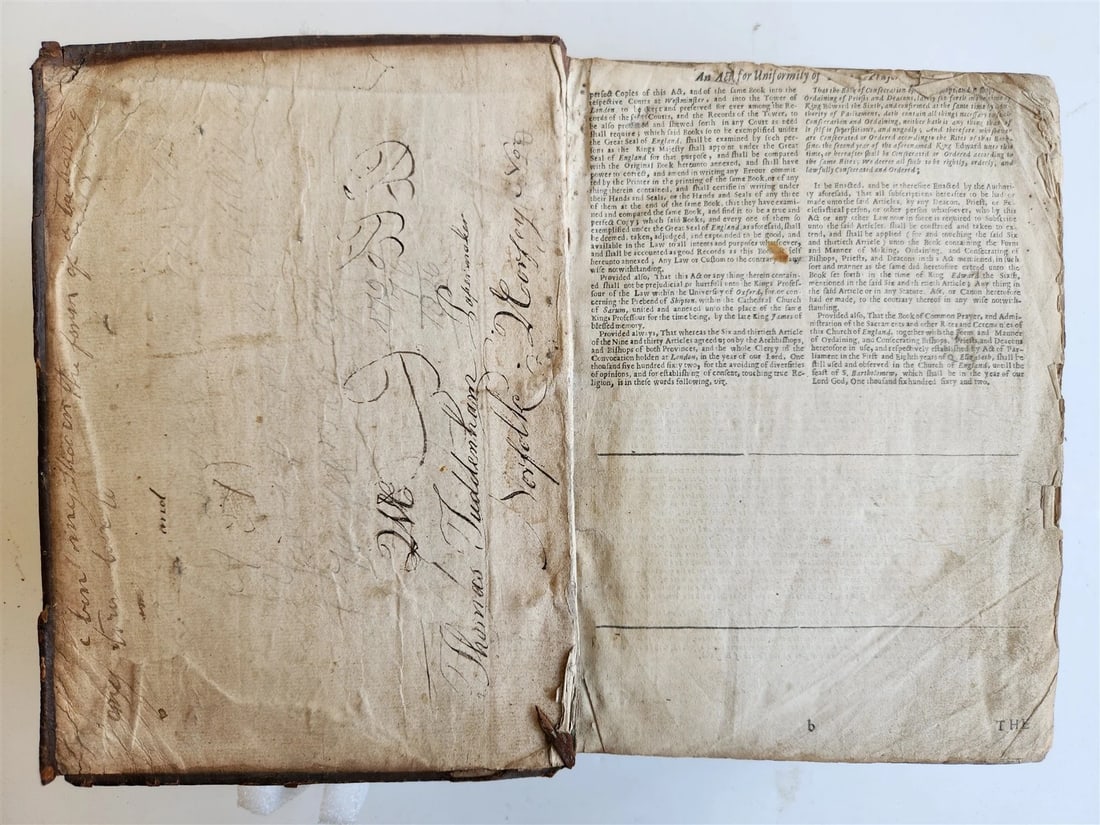 Mr
Thomas Tuddenham Papermaker
Norfolk
Horsey Nor
and
An Act for Uniformity of
perfect Copies of this Act, and of the same Book into the
respective Courts at Westminster, and into the Tower of
London, to be kept and preserved for ever among the Re-
cords of the said Courts, and the Records of the Tower, to
be also produced and shewed forth in any Court as need
shall require; which said Books so to be exemplified under
the Great Seal of England, shall be examined by such per-
sons as the Kings Majesty shall appoint under the Great
Seal of England for that purpose, and shall be compared
with the Original Book hereunto annexed, and shall have
power to correct, and amend in writing any Errour commit-
ted by the Printer in the printing of the same Book, or of any
thing therein contained, and shall certifie in writing under
their Hands and Seals, or the Hands and Seals of any three
of them at the end of the same Book, that they have exami-
ned and compared the same Book, and find it to be a true and
perfect Copy; which said Books, and every one of them so
exemplified under the Great Seal of England, as aforesaid, shall
be deemed, taken, adjudged, and expounded to be good, and
available in the Law to all intents and purposes whatsoever,
and shall be accounted as good Records as this Book it self
hereunto annexed; Any Law or Custom to the contrary in any
wise notwithstanding.
Provided also, That this Act or any thing therein contain-
ed shall not be prejudicial or hurtfull unto the Kings Profes-
sour of the Law within the University of Oxford, for or con-
cerning the Prebend of Shipton, within the Cathedral Church
of Sarum, united and annexed unto the place of the same
Kings Professour for the time being, by the late King James of
blessed memory.
Provided always, That whereas the Six and thirtieth Article
of the Nine and thirty Articles agreed upon by the Archbishops,
and Bishops of both Provinces, and the whole Clergy in the
Convocation holden at London, in the year of our Lord, One
thousand five hundred sixty two, for the avoiding of diversities
of opinions, and for establishing of consent, touching true Re-
ligion, is in these words following, viz.
That the Book of Consecration of
Ordaining of Priests and Deacons, lately set forth in the time of
King Edward the Sixth, and confirmed at the same time by Au-
thority of Parliament, doth contain all things necessary to such
Consecration and Ordaining, neither hath it any thing that of
it self is superstitious, and ungodly; And therefore whosoever
are Consecrated or Ordered according to the Rites of that Book,
since the second year of the aforenamed King Edward unto this
time, or hereafter shall be Consecrated or Ordered according to
the same Rites; We decree all such to be rightly, orderly, and
lawfully Consecrated and Ordered;
It be Enacted, and be it therefore Enacted by the Authori-
ty aforesaid, That all subscriptions hereafter to be had or
made unto the said Articles, by any Deacon, Priest, or Ec-
clesiastical person, or other person whatsoever, who by this
Act or any other Law now in force is required to Subscribe
unto the said Articles, shall be construed and taken to ex-
tend, and shall be applied (for and touching the said Six
and thirtieth Article) unto the Book containing the Form
and Manner of Making, Ordaining, and Consecrating of
Bishops, Priests, and Deacons in this Act mentioned, in such
sort and manner as the same did heretofore extend unto the
Book set forth in the time of King Edward the Sixth,
mentioned in the said Six and thirtieth Article; Any thing in
the said Article or in any Statute, Act, or Canon heretofore
had or made, to the contrary thereof in any wise notwith-
standing.
Provided also, That the Book of Common Prayer, and Admi-
nistration of the Sacraments and other Rites and Ceremonies of
this Church of England, together with the Form and Manner
of Ordaining, and Consecrating Bishops, Priests and Deacons
heretofore in use, and respectively established by Act of Par-
liament in the First and Eighth years of Q. Elizabeth, shall be
still used and observed in the Church of England, untill the
feast of S. Bartholomew, which shall be in the year of our
Lord God, One thousand six hundred sixty and two.
b
THE